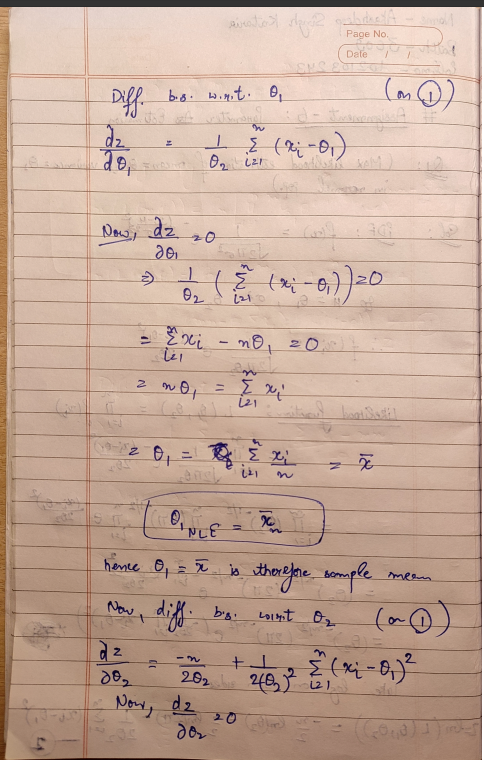 Page No.
Date /
Diff. b.s. w.r.t. θ₁ (on ①)
dz/dθ₁ = 1/θ₂ Σⁿᵢ₌₁ (xᵢ - θ₁)
Now, dz/∂θ₁ = 0
⇒ 1/θ₂ ( Σⁿᵢ₌₁ (xᵢ - θ₁)) = 0
= Σⁿᵢ₌₁ xᵢ - nθ₁ = 0
= nθ₁ = Σⁿᵢ₌₁ xᵢ
= θ₁ = Σⁿᵢ₌₁ xᵢ/n = x̄
θ₁ MLE = x̄ₙ
hence θ₁ = x̄ is therefore sample mean
Now, diff. b.s. w.r.t θ₂ (on ①)
dz/∂θ₂ = -n/2θ₂ + 1/2(θ₂)² Σⁿᵢ₌₁ (xᵢ - θ₁)²
Now, dz/∂θ₂ = 0